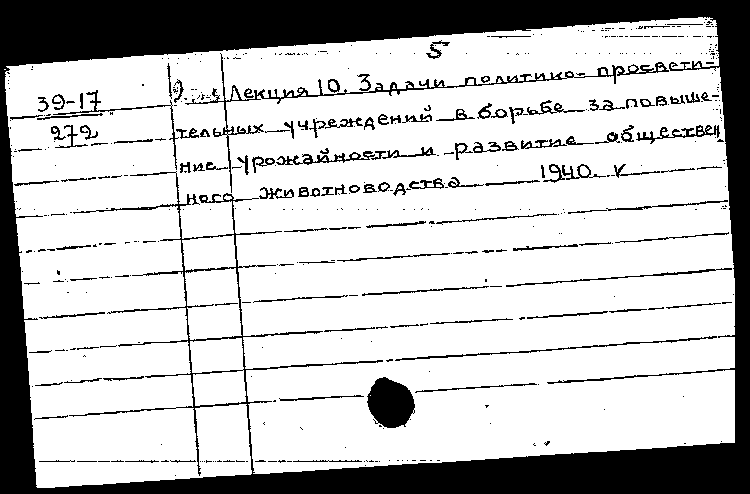 5
39-17
272
Лекция 10. Задачи политико- просвети-
тельных учреждений в борьбе за повыше-
ние урожайности и развитие обществен
ного животноводства 1940. v